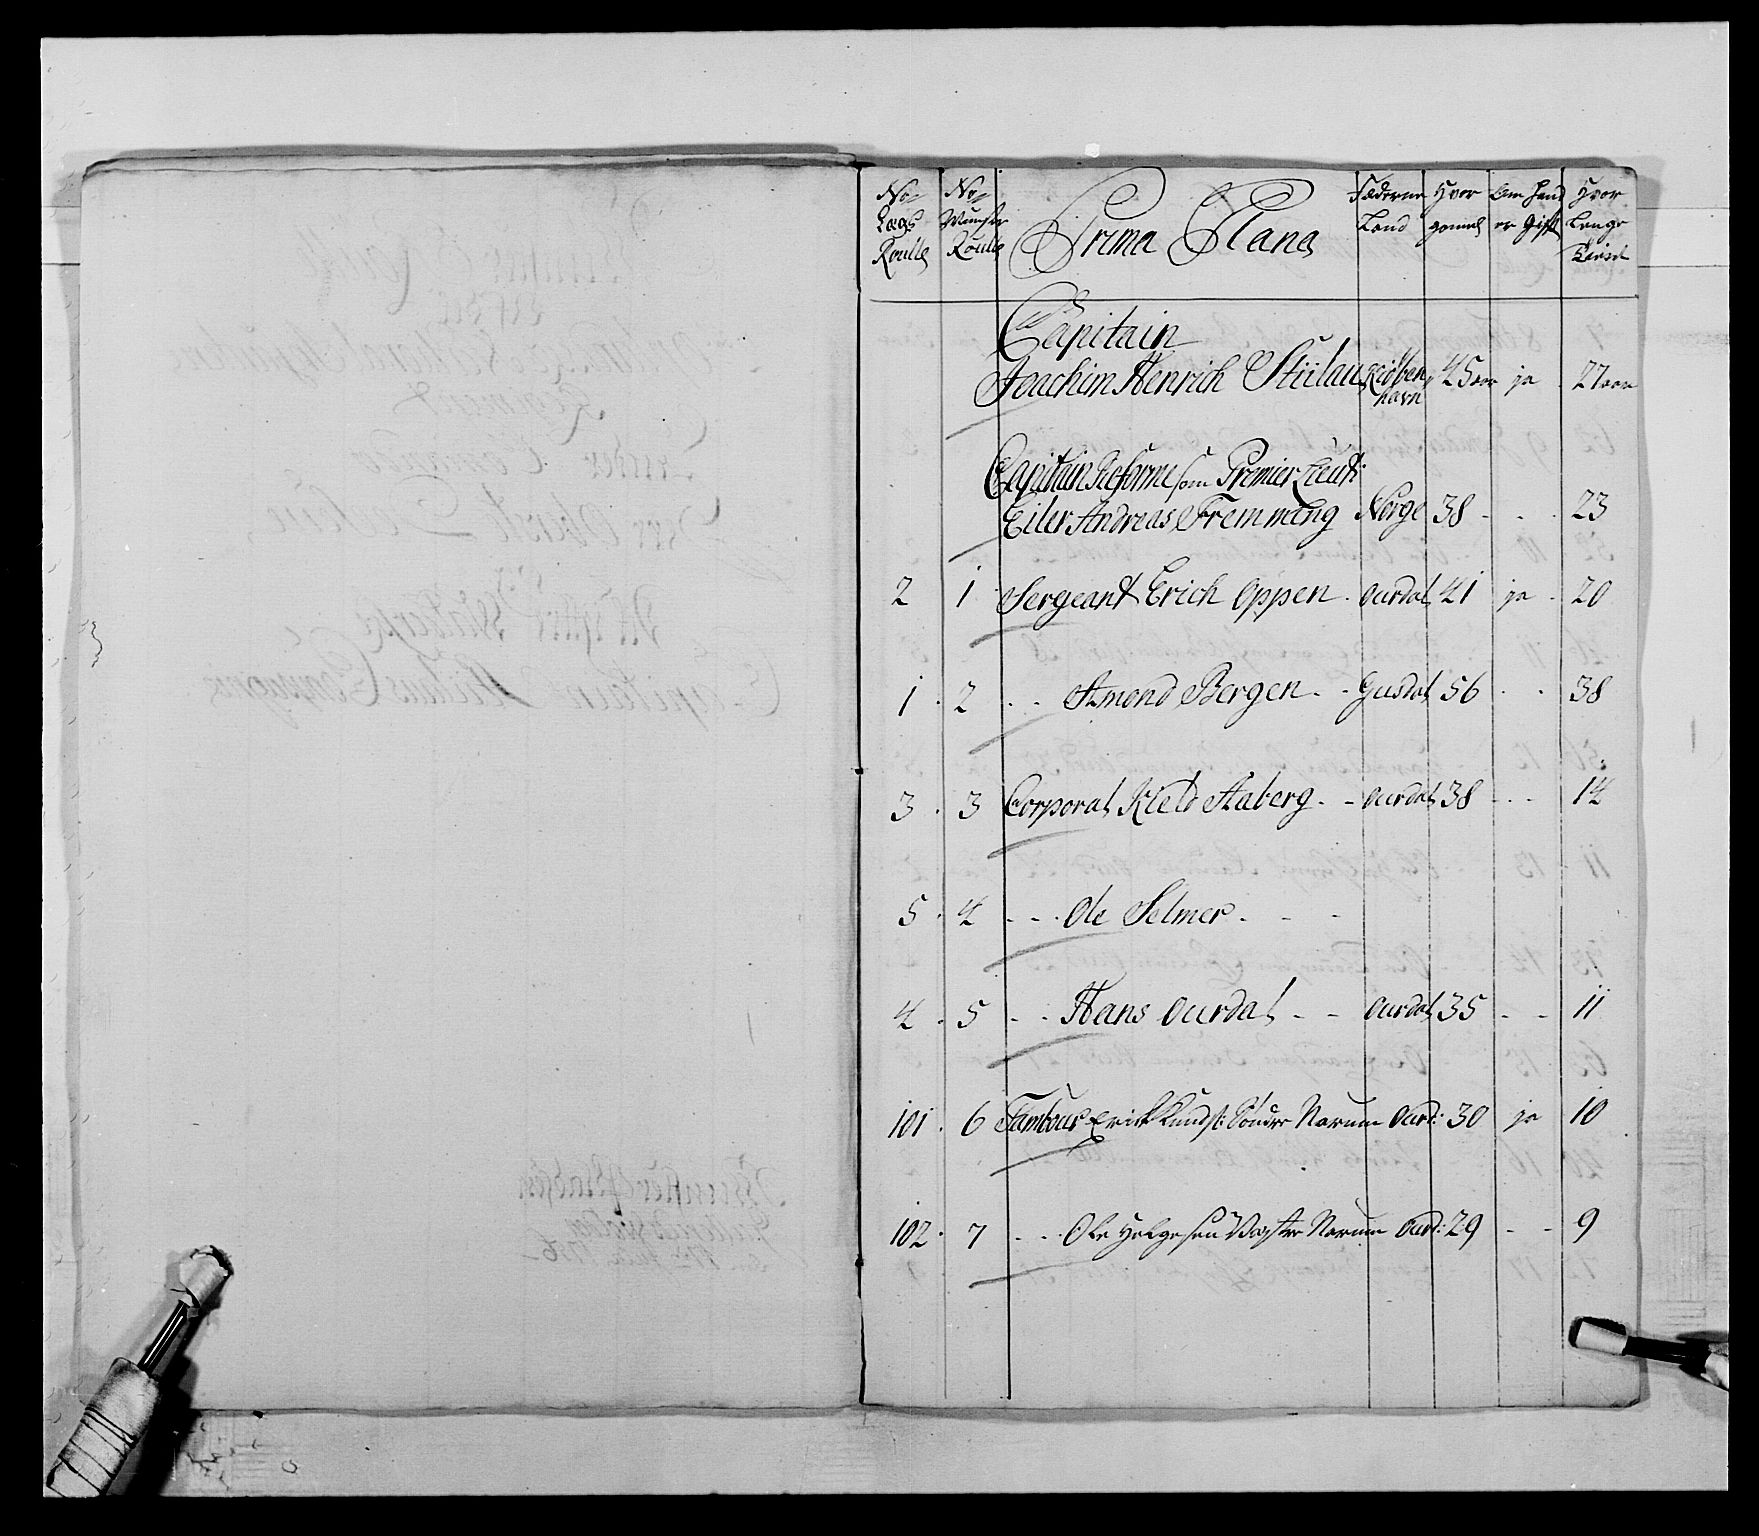 No Lægs Roulle | No Mynster Roulle | Prima Plana | Fæderne Land | Hvor gammel | Om hand er Gift | Hvor Længe tient
Capitain
Joachim Henrich Stülau | Kiøbenhavn | 45 aar | ja | 27 aar
Capitain Reforme som Premier Lieut:
Eiler Andreas Fremming | Norge | 38 - | - - | 23
2 | 1 | Sergeant Erich Oppen - | Ourdal | 41 | ja - | 20
1 - | 2 | - - Amond Bergen - - | Gusdal | 56 | - - | 38
3 - | 3 | Corporal Kield Aaberg - - | Ourdal | 38 | - - | 14
5 - | 4 | - - - Ole Selmer - - -
4 - | 5 | - - Hans Ourdal - - | Ourdal | 35 | - - | 11
101 - | 6 | Tambour Erick Knuds: Søndre Narum | Ourd: | 30 | ja | 10
102 - | 7 | - - - Ole Helgesen Wæstre Narum | Ourd: | 29 | - - | 9